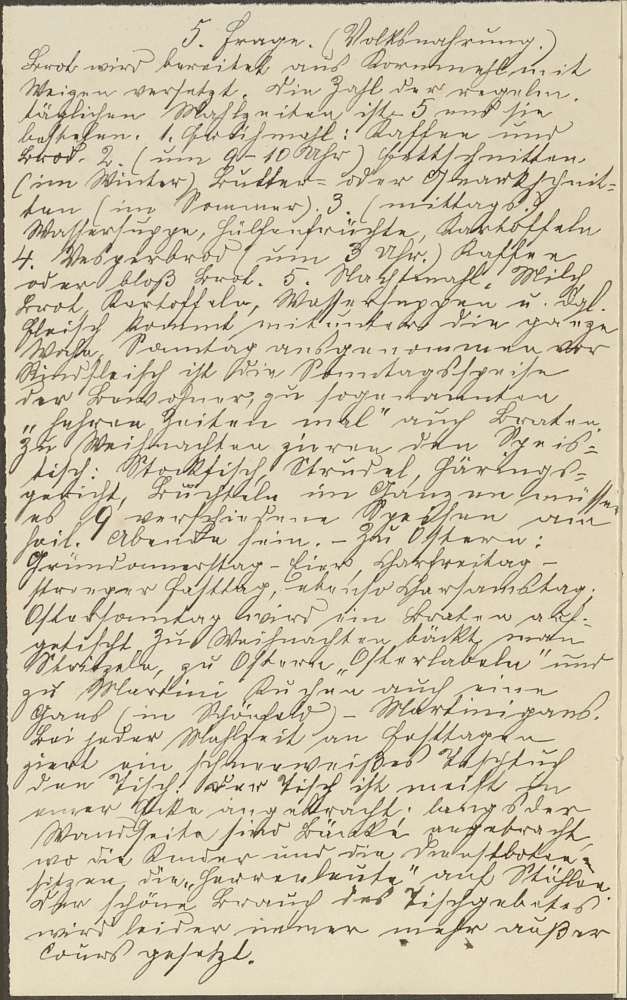 5. Frage. (Volksnahrung.)
Brot wird bereitet aus Kornmehl mit
Weizen versetzt. Die Zahl der regelm.
täglichen Mahlzeiten ist 5 und sie
bestehen: 1. Frühmahl: Kaffee und
Brod. 2. (um 9-10 Uhr) Fettschnitten
(im Winter) Butter- oder Quarkschnit-
ten (im Sommer). 3. (mittags)
Wassersuppe, Hülsenfrüchte, Kartoffeln
4. Vesperbrod (um 3 Uhr.) Kaffee
oder bloß Brot. 5. Nachtmahl, Milch
Brot, Kartoffeln, Wassersuppen u. dgl.
Fleisch kommt mitunter die ganze
Woche, Sonntag ausgenommen vor
Rindfleisch ist die Sonntagsspeise
der Bewohner, zu sogenannten
„ Zeiten mal" auch Braten.
Zu Weihnachten zieren den Speis-
tisch: Stockfisch, Strudel, Härings-
gericht, Buchteln im Ganzen müssen
es 9 verschiedene Speisen am
heil. Abende sein. - Zu Ostern:
Gründonnerstag - Eier, Charfreitag -
strenger Fasttag, ebenso Charsamstag.
Ostersonntag wird ein Braten auf-
getischt. Zu Weihnachten bäckt man
Stritzeln, zu Ostern „Osterlabeln" und
zu Martini Kuchen auch eine
Gans (in Schönfeld) - Martinigans.
Bei jeder Mahlzeit an Festtagen
ziert ein schneeweißes Tischtuch
den Tisch. Der Tisch ist meist in
einer Ecke angebracht; längs der
Wandseite sind Bänke angebracht,
wo die Kinder und die Dienstboten
sitzen, die „Herrenleute" auf Stühlen.
Der schöne Brauch des Tischgebetes
wird leider immer mehr außer
Cours gesetzt.